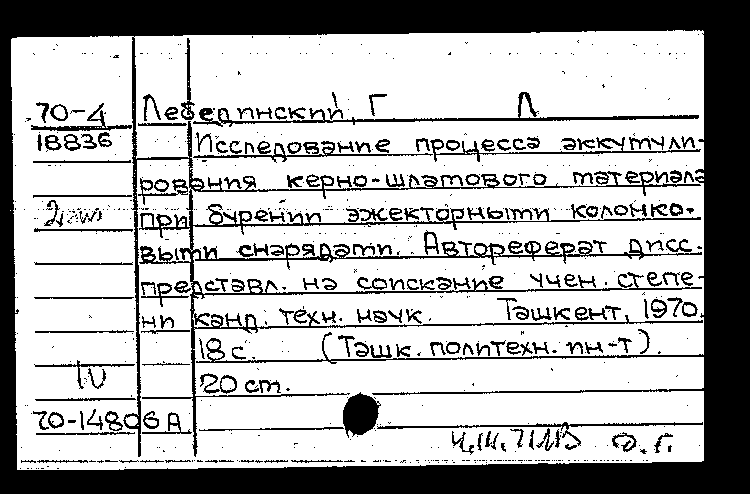 70-4 Лебединский, Г Л
18836 Исследование процесса аккумули-
рования керно-шламового материала
при бурении эжекторными колонко-
выми снарядами. Автореферат дисс.
представл. на соискание учен. степе-
ни канд. техн. наук. Ташкент, 1970.
18 с. (Ташк. политехн. ин-т).
20 см.
70-14806 А